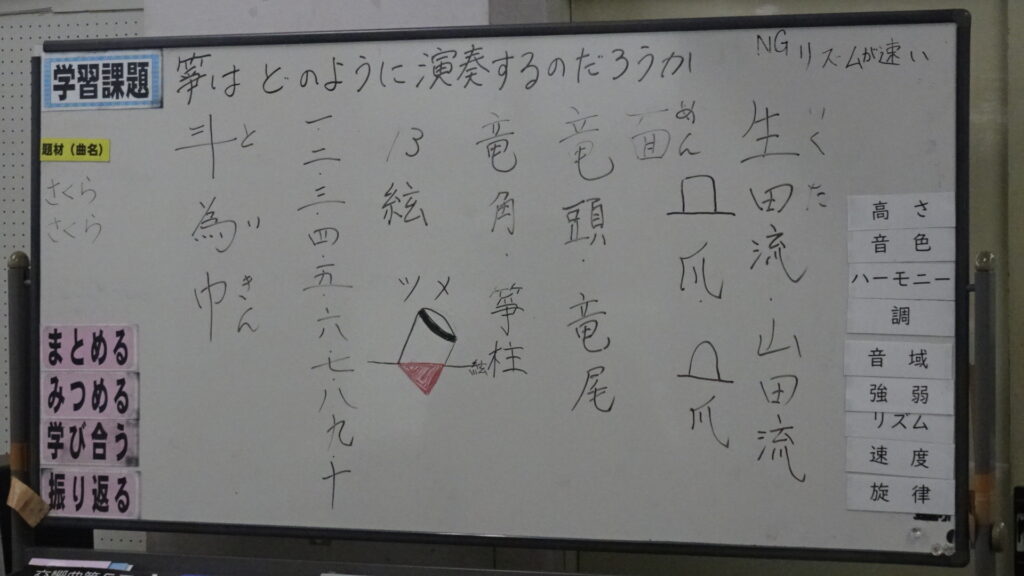 学習課題
箏は どのように演奏するのだろうか
NG リズムが速い
題材（曲名）
さくら
さくら
生田流・山田流
いくた
面
めん
爪
爪
竜頭・竜尾
竜角・箏柱
13絃
ツメ
絃
一・二・三・四・五・六・七・八・九・十
斗為巾
と い きん
高さ
音色
ハーモニー
調
音域
強弱
リズム
速度
旋律
まとめる
みつめる
学び合う
振り返る